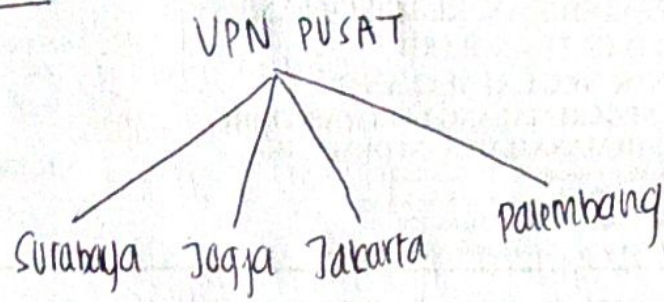 VPN PUSAT
Surabaya Jogja Jakarta Palembang